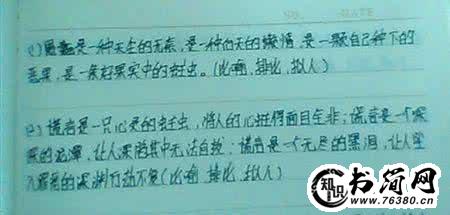 NO. DATE
(1)愚蠢是一种天生的无能,是一种后天的懒惰,是一颗自己种下的
恶果,是一条好果实中的蛀虫。(比喻,排比,拟人)
(2)谎言是一只心灵的蛀虫,将人的心蛀得面目全非;谎言是一个深
深的泥潭,让人深陷其中无法自拔;谎言是一个无尽的黑洞,让人坠
入罪恶的深渊万劫不复(比喻,排比,拟人)
知识
书简网
www.76380.cn